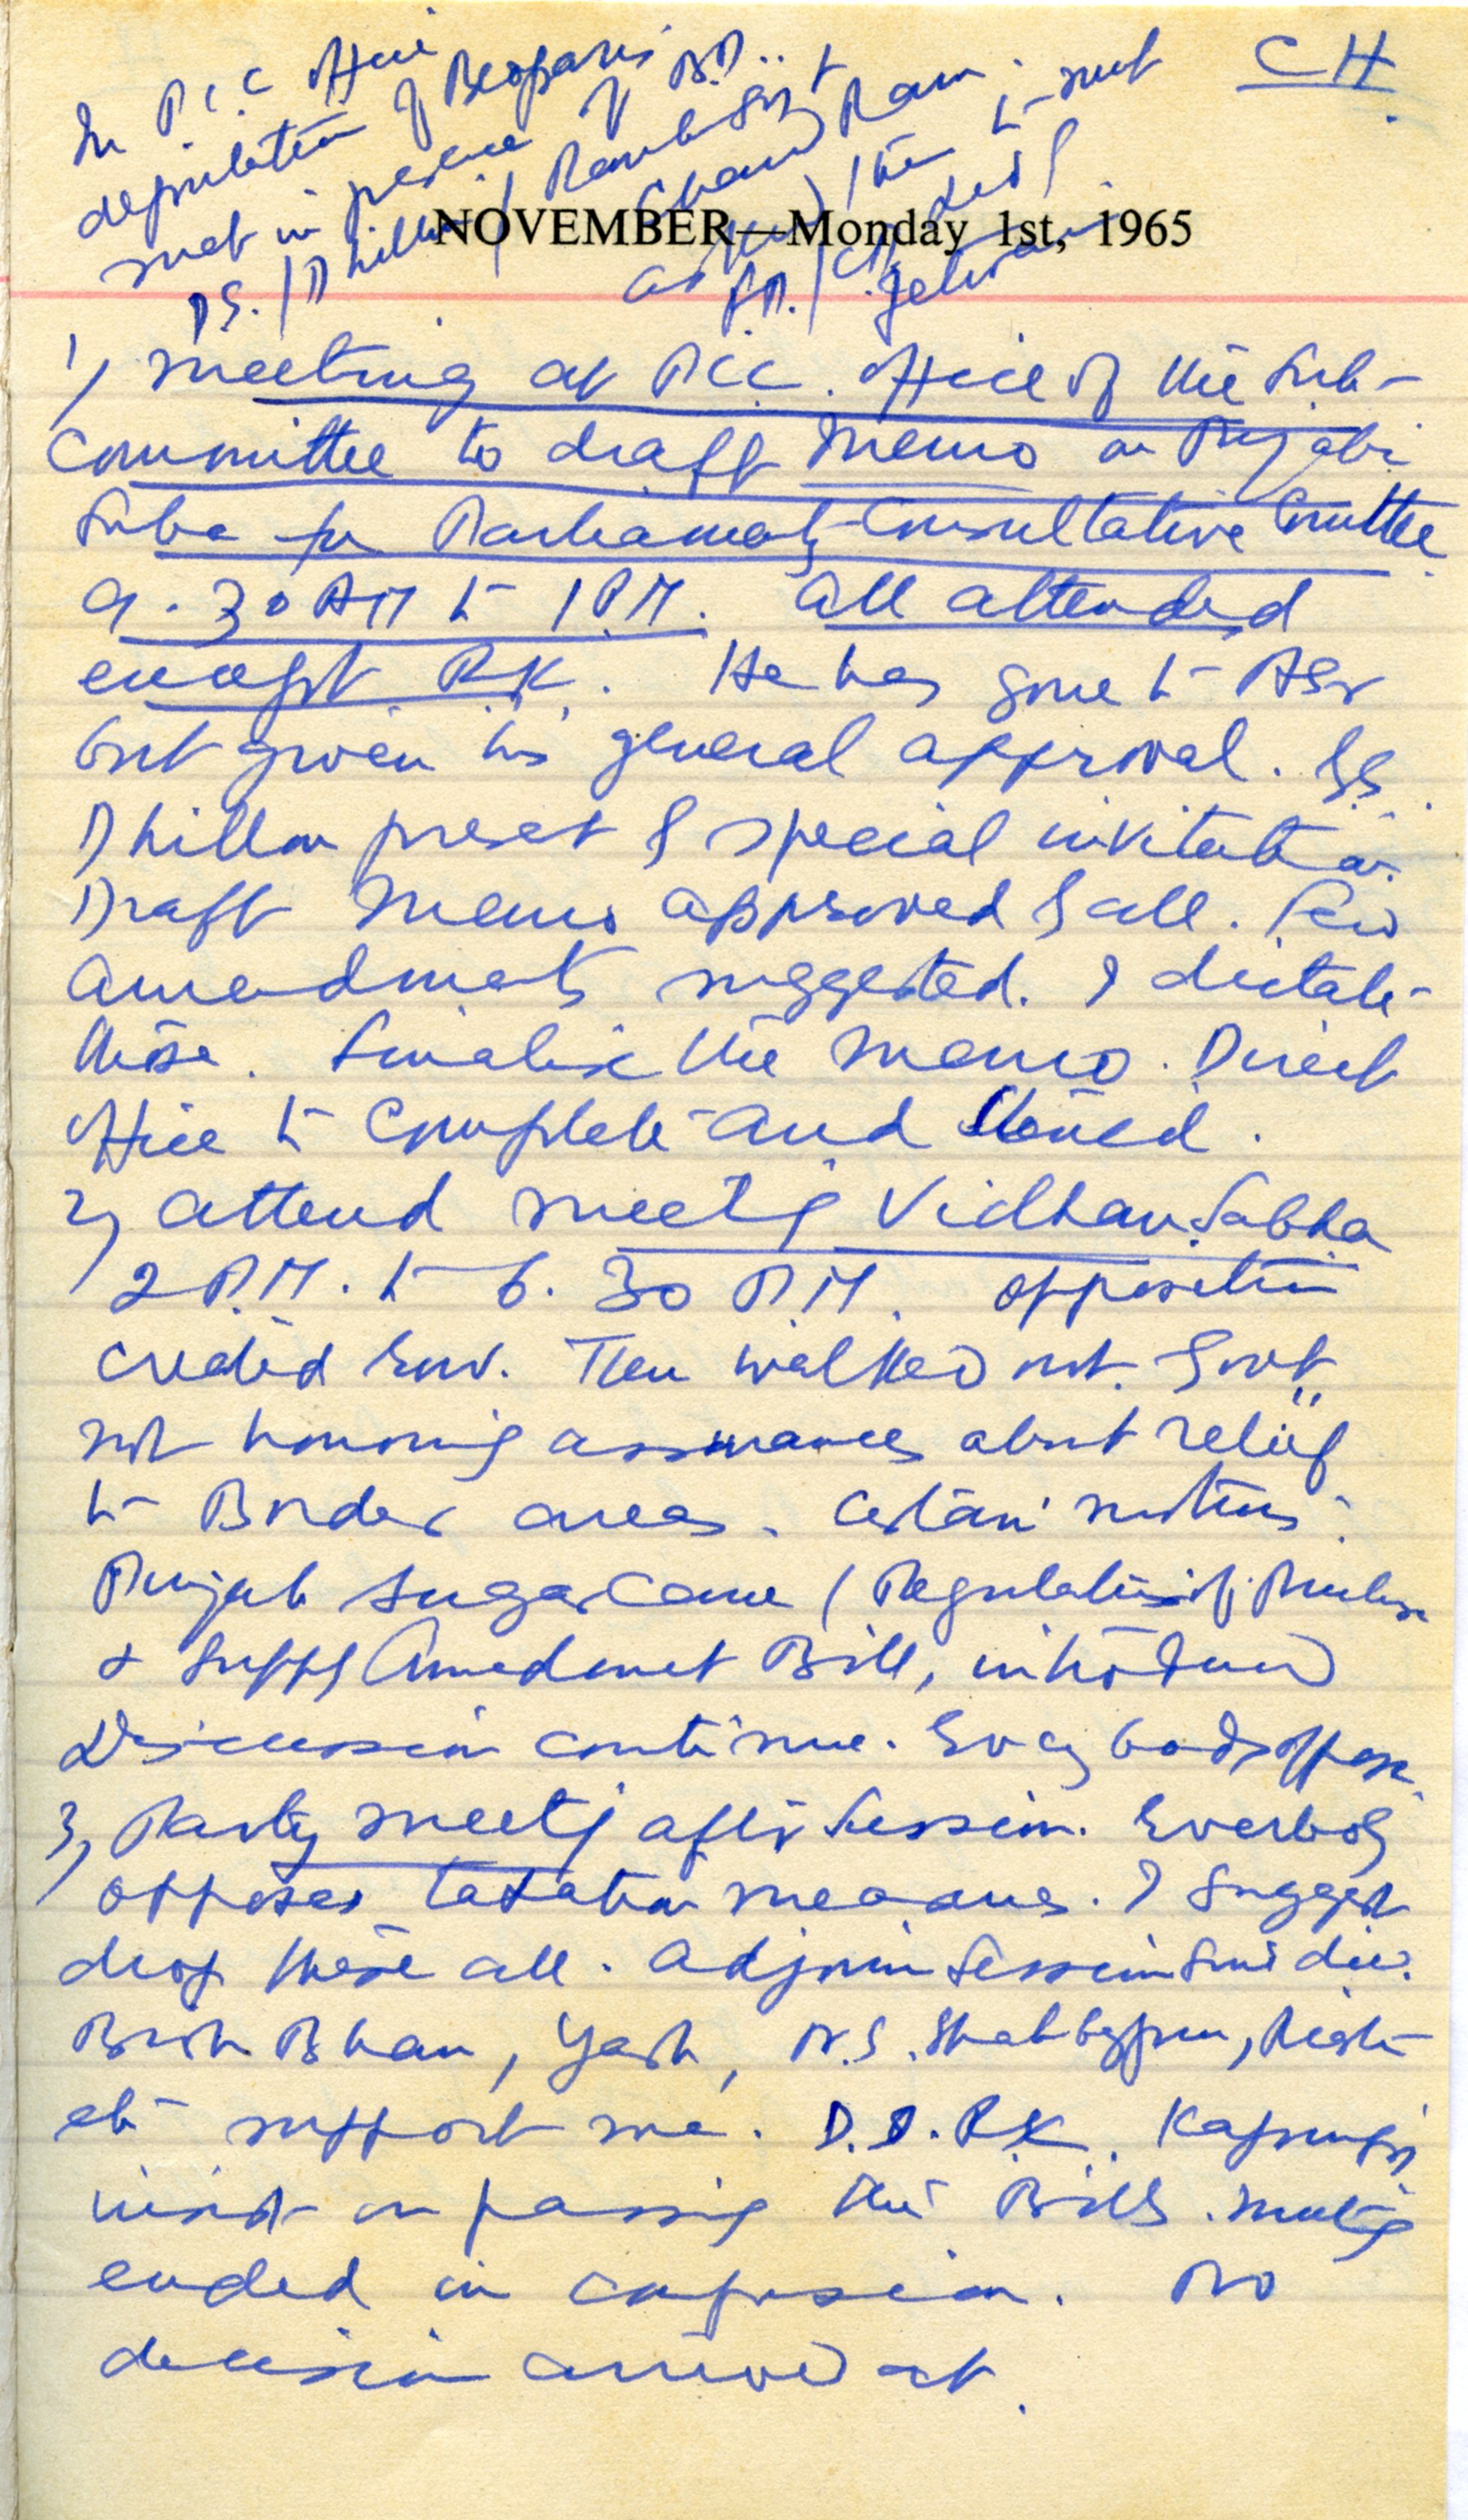 CH.
In P.C.C Office
deputation of Beoparis
met in presence of B.D..
D.S. / Dhillon /
Chand Ram
to meet
NOVEMBER—Monday 1st, 1965
1) Meeting at PCC. Office of the Sub-
Committee to draft Memo on Punjabi
Suba for Parliamenty Consultative Cmuttee
9.30 AM to 1 P.M. All attended
except R.K. He has gone to ASr
but given his general approval. GS.
Dhillon preset by special invitation.
Draft Memo approved by all. Few
amendments suggested. I dictate
these. Finalise the Memo. Direct
office to complete and
2) attend meetg Vidhan Sabha
2 P.M. to 6.30 P.M. opposition
created row. Then walked out. Govt
not honouring assurances about relief
to Border areas. Certain motions.
Punjab Sugar Cane (Regulation of Purchase
& Supply Amedmet Bill, introduced
Discussion continue. Every body oppose.
3) Party meetg after Session. Everbody
opposes taxation measures. I suggest
drop these all. Adjourn Session Sine die.
Brish Bhan, Yash, N.S. Shahbazpuri,
etc support me. D.D. R.K. Kapungo
insist on passing the Bills. Meeting
ended in confusion. No
decision arrived at.